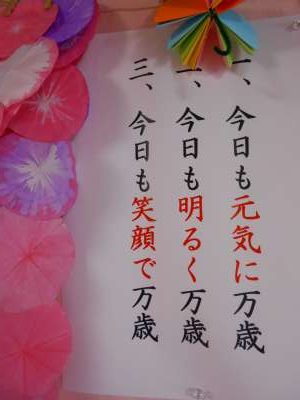 一、今日も元気に万歳
一、今日も明るく万歳
三、今日も笑顔で万歳